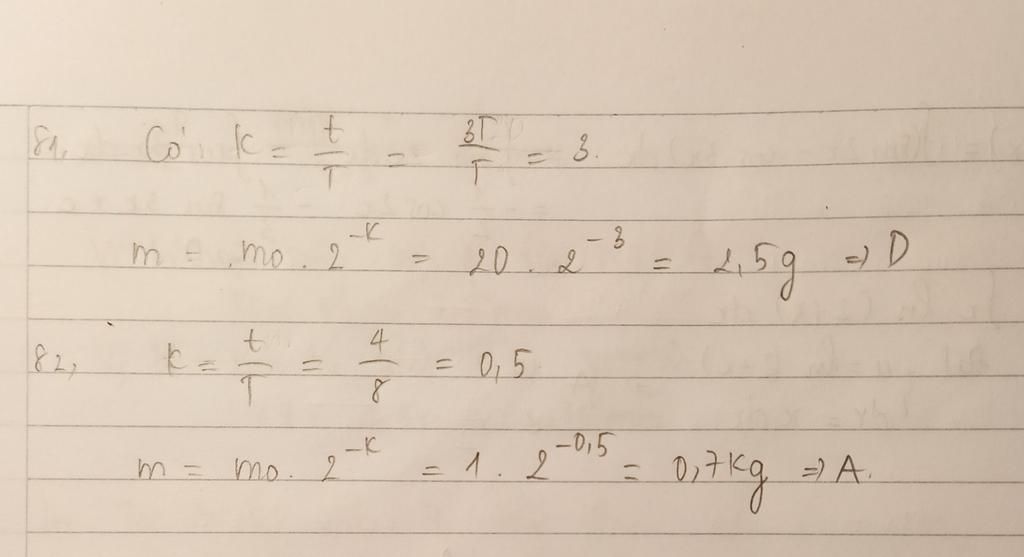 81, Có K = t/T = 3T/T = 3.
m = mo. 2^-K = 20 . 2^-3 = 2,5g => D
82, K = t/T = 4/8 = 0,5
m = mo. 2^-K = 1 . 2^-0,5 = 0,7Kg => A.